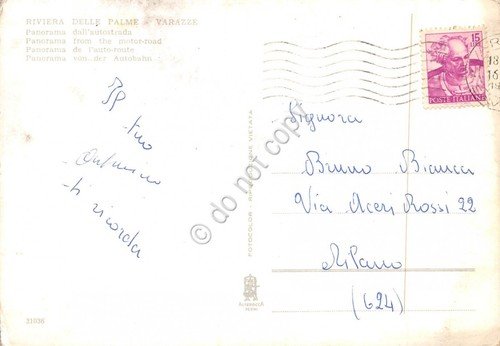 RIVIERA DELLE PALME - VARAZZE
Panorama dall'autostrada
Panorama from the motor-road
Panorama de l'auto-route
Panorama von der Autobahn
Il tuo
ti ricorda
31936
15
POSTE ITALIANE
18
16
Signora
Bruno Bianca
Via Aceri Rossi 22
Milano
(624)
© do not copy